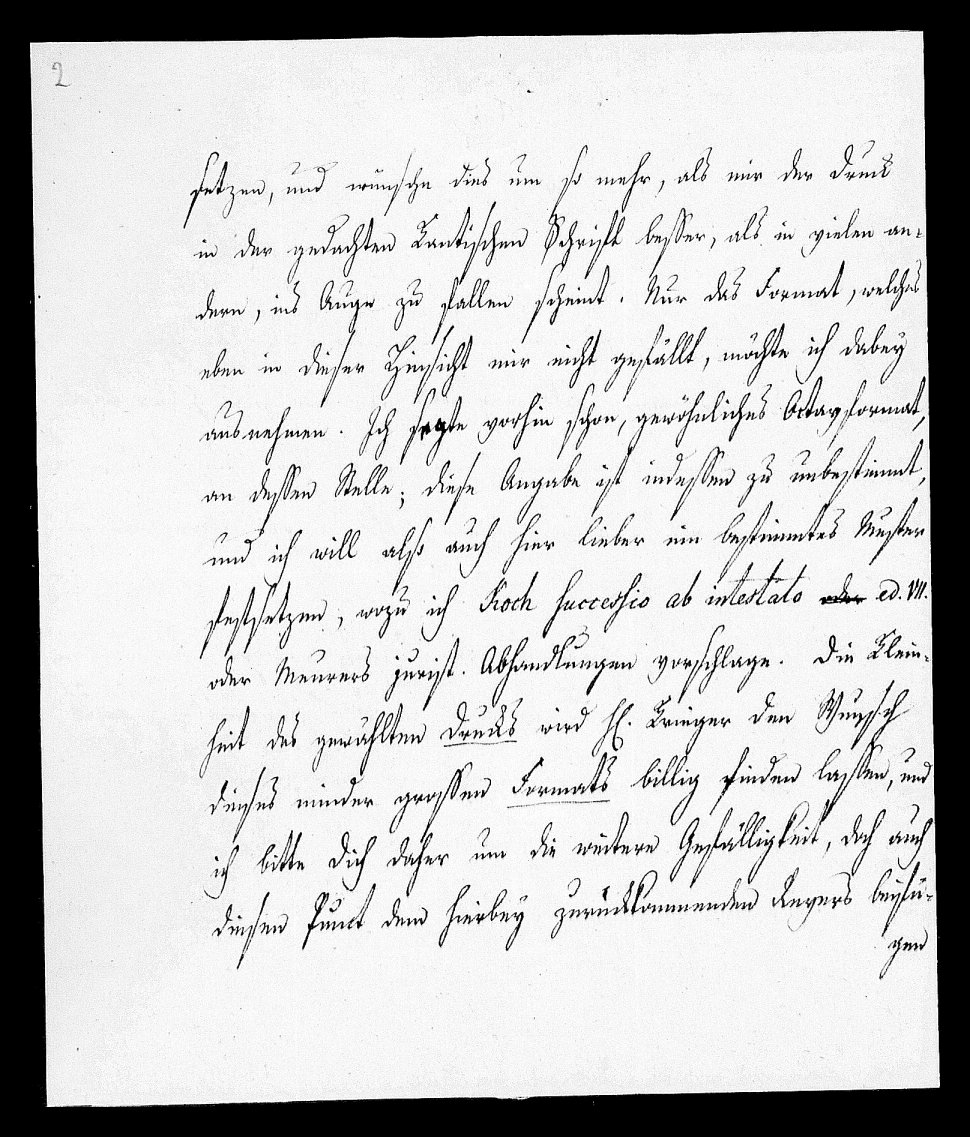 2
setzen, und wünsche dies um so mehr, als mir der Druck
in der gedachten Kantischen Schrift besser, als in vielen an-
dern, ins Auge zu fallen scheint. Nur das Format, welches
eben in dieser Hinsicht mir nicht gefällt, möchte ich dabey
ausnehmen. Ich sagte vorhin schon, gewöhnliches Octavformat,
an dessen Stelle; diese Angabe ist indessen zu unbestimmt,
und ich will also auch hier lieber ein bestimmtes Muster
festsetzen, wozu ich Koch successio ab intestato oder ed. VII.
oder Meurers jurist. Abhandlungen vorschlage. Die Klein-
heit des gewählten Drucks wird H. Krieger den Wunsch
dieses minder grossen Formats billig finden lassen, und
ich bitte dich daher um die weitere Gefälligkeit, doch auch
diesen Punct dem hierbey zurückkommenden Revers beyfü-
gen